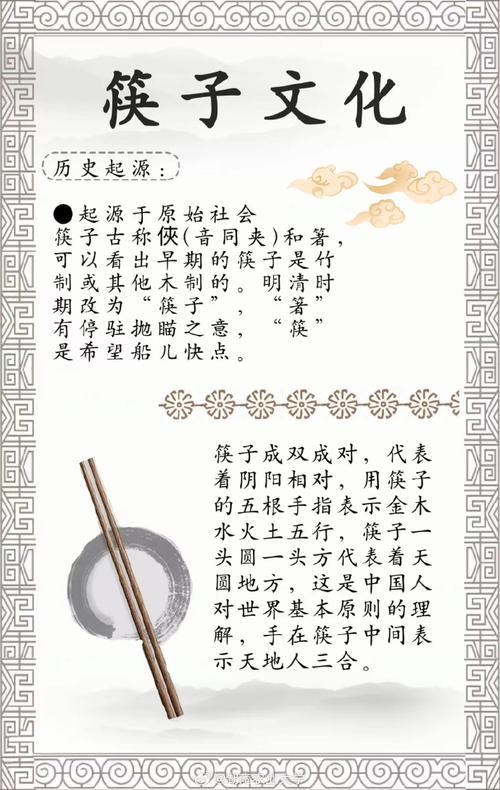 筷子文化
历史起源：
●起源于原始社会
筷子古称俠(音同夹)和箸，
可以看出早期的筷子是竹
制或其他木制的。明清时
期改为“筷子”，“箸”
有停驻抛瞄之意，“筷”
是希望船儿快点。
筷子成双成对，代表
着阴阳相对，用筷子
的五根手指表示金木
水火土五行，筷子一
头圆一头方代表着天
圆地方，这是中国人
对世界基本原则的理
解，手在筷子中间表
示天地人三合。